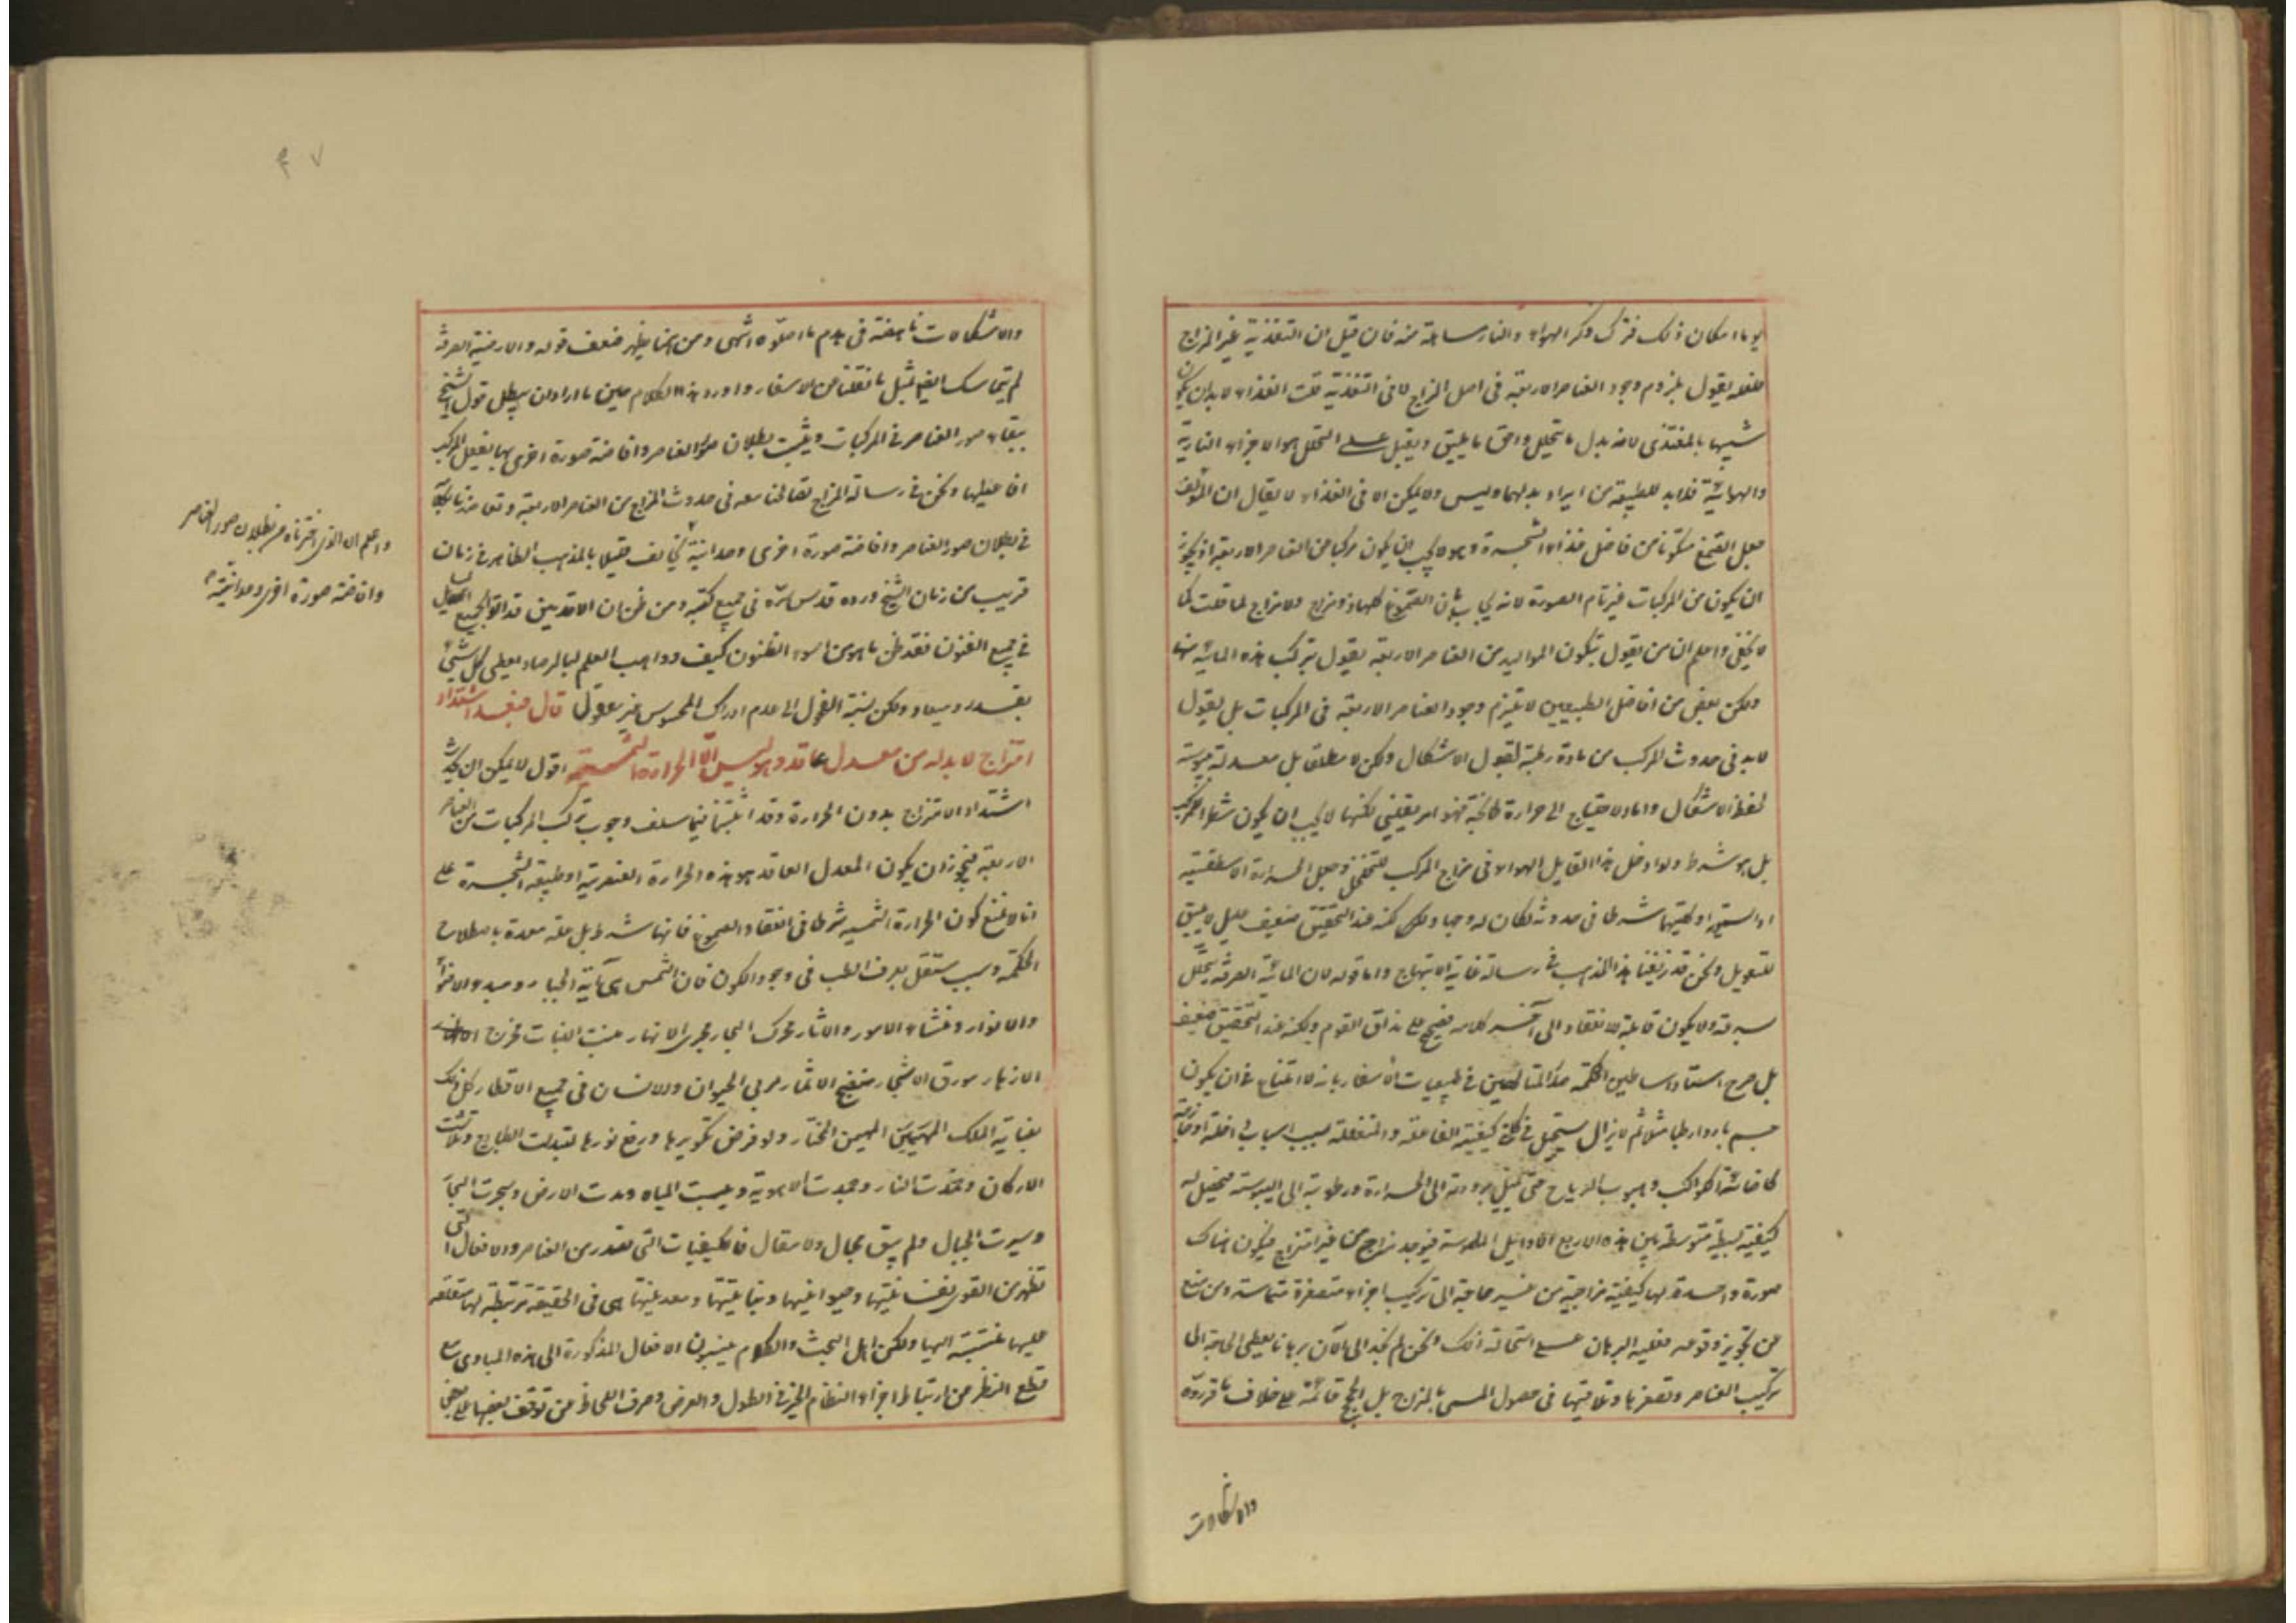 يوما امكان ذلك فترك ذكر الهواء والنار مسامحة منه فان قيل ان التغذية غير المزاج
فلعله يقول بلزوم وجود العناصر الاربعة في اصل المزاج لا في التغذية قلت الغذاء لا بد ان يكون
شبيها بالمغتذى لانه بدل ما يتحلل واحق ما يليق ويقبل على التحلل هو الاجزاء النارية
والهوائية فلا بد للطبيعة من ايراد بدلهما وليس ولا يمكن الا في الغذاء لا يقال ان المؤلف
جعل الصمغ متكونا من فاضل غذاء الشجرة وهو لا يجب ان يكون مركبا من العناصر الاربعة اذ يجوز
ان يكون من المركبات غير تام الصورة لانه يجاب بان الصموغ كلها ذو مزاج ولا مزاج لما قلت كما
لا يخفى واعلم ان من يقول بتكون المواليد من العناصر الاربعة يقول بتركب هذه المائية منها
ولكن بعض من افاضل الطبيعيين لا يلتزم وجود العناصر الاربعة في المركبات بل يقول
لا بد في حدوث المركب من مادة رطبة لقبول الاشكال ولكن لا مطلقا بل معدلة بيبوسة
لحفظ الاشكال واما الاحتياج الى حرارة طابخة فهو امر يقيني لكنها لا يجب ان يكون شطر المركب
بل هو شرط ولو ادخل هذا القايل الهواء في مزاج المركب للتخلخل وجعل الحرارة الاسطقسية
او السماوية او كليتهما شرطا في حدوثه لكان له وجها ولكنه عند التحقيق ضعيف عليل لا يليق
للتعويل ونحن قد زيفنا هذا المذهب في رسالة غاية الابتهاج واما قوله لان المائية الصرفة يتحلل
سرعة ولا يكون قابلة للانعقاد الى آخر كلامه فصحيح على مذاق القوم ولكنه عند التحقيق ضعيف
بل صرح استاد اساطين الحكمة صدر المتالهين في طبيعيات الاسفار بانه لا امتناع في ان يكون
جسم باردا رطبا مثلا ثم لا يزال يستحيل في كلتي كيفيته الفاعلة والمنفعلة بسبب اسباب داخلة او خارجة
كاضائة الكواكب وهبوب الرياح حتى تميل برودته الى الحرارة ورطوبته الى اليبوسة فيحصل له
كيفية بسيطة متوسطة بين هذه الاربع الاوائل الملموسة فيوجد مزاج من غير امتزاج فيكون هناك
صورة واحدة لها كيفية مزاجية من غير حاجة الى تركيب اجزاء متصغرة متماسة ومن منع
عن تجويز وقوعه فعليه البرهان على استحالة ذلك ونحن لم نجد الى الآن برهانا يعطي الحاجة الى
تركيب العناصر وتصغرها وتلاقيها في حصول المسمى بالمزاج بل الحجج قائمة على خلاف ما قرروه
والاشكالات
والاشكالات ناهضة في هدم ما اصلوه انتهى ومن هنا يظهر ضعف قوله والارضية الصرفة
لم يتماسك ايضا بمثل ما نقلنا من الاسفار واورد هذا الكلام حين ما اراد ان يبطل قول الشيخ
ببقاء صور العناصر في المركبات ويثبت بطلان صور العناصر وافاضة صورة اخرى بها يفعل المركب
افاعيلها ونحن في رسالة المزاج تقالنا معه في حدوث المزاج من العناصر الاربعة
في بطلان صور العناصر وافاضة صورة اخرى وحدانية
قريب من زمان الشيخ ورده قدس سره في جميع كتبه ومن ظن ان الاقدمين قد اتوا بجميع
في جميع الفنون فقد ظن ما هو من اسوء الظنون كيف وواهب العلم لبالمرصاد يعطي كل شيء
بقدر وميعاد ولكن نسبة الفحول الى عدم ادراك المحسوس غير معقول قال فبعد اشتداد
امتزاج لا بد له من معدل عاقد وهو ليس الا الحرارة الشمسية اقول لا يمكن ان يحدث
اشتداد الامتزاج بدون الحرارة وقد اثبتنا فيما سلف وجوب تركب المركبات من العناصر
الاربعة فيجوز ان يكون المعدل العاقد هو هذه الحرارة العنصرية او طبيعة الشجرة على
انا لا نمنع كون الحرارة الشمسية شرطا في انعقاد الصموغ فانها شرط بل علة معدة باصطلاح
الحكمة وسبب مستقل بعرف الطب في وجود الكون فان الشمس هي آية الجبار ومبدء الاضواء
والانوار ومنشاء الامور والآثار محرك البحار مجري الانهار منبت النبات مخرج
الازهار مورق الاشجار منضج الاثمار مربي الحيوان والانسان في جميع الاقطار كل ذلك
بعناية الملك المهيمن المختار ولو فرض تكويرها ورفع نورها لتبدلت الطبايع وتلاشت
الاركان وخمدت النار وجمدت الاهوية ويبست المياه ومدت الارض وسجرت البحار
وسيرت الجبال ولم يبق مجال ولا مقال فالكيفيات التي تصدر من العناصر والافعال التي
تظهر من القوى نفسانيتها وحيوانيتها ونباتيتها ومعدنيتها هي في الحقيقة مرتبطة بها متعلقة
عليها منتسبة اليها ولكن اهل البحث والكلام ينسبون الافعال المذكورة الى هذه المبادي مع
قطع النظر من ارتباط اجزاء النظام الخير في الطول والعرض وصرف اللحاظ من توقف بعضها على بعض
واعلم ان الذي اخترناه من بطلان صور العناصر
وافاضة صورة اخرى وحدانية
۴۷